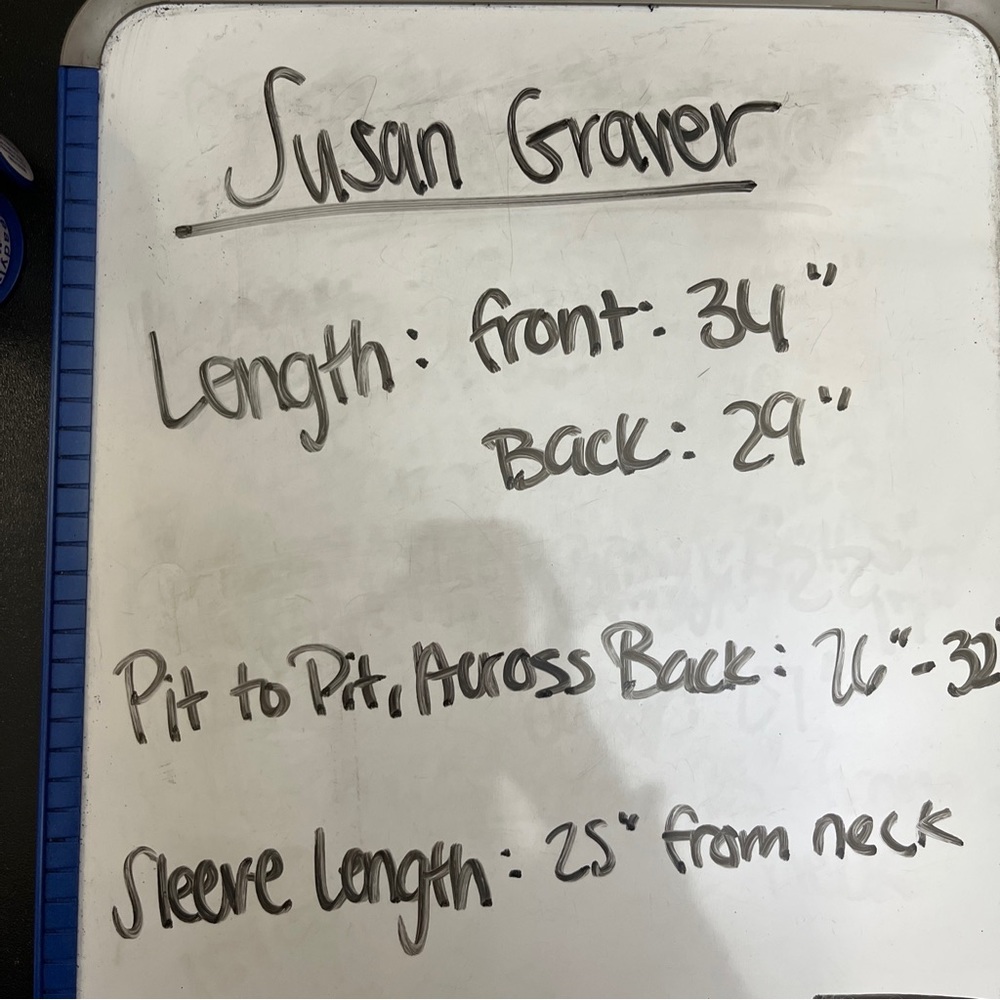 Susan Graver
Length: front: 34"
Back: 29"
Pit to Pit, Across Back: 26"-32"
Sleeve Length: 25" from neck